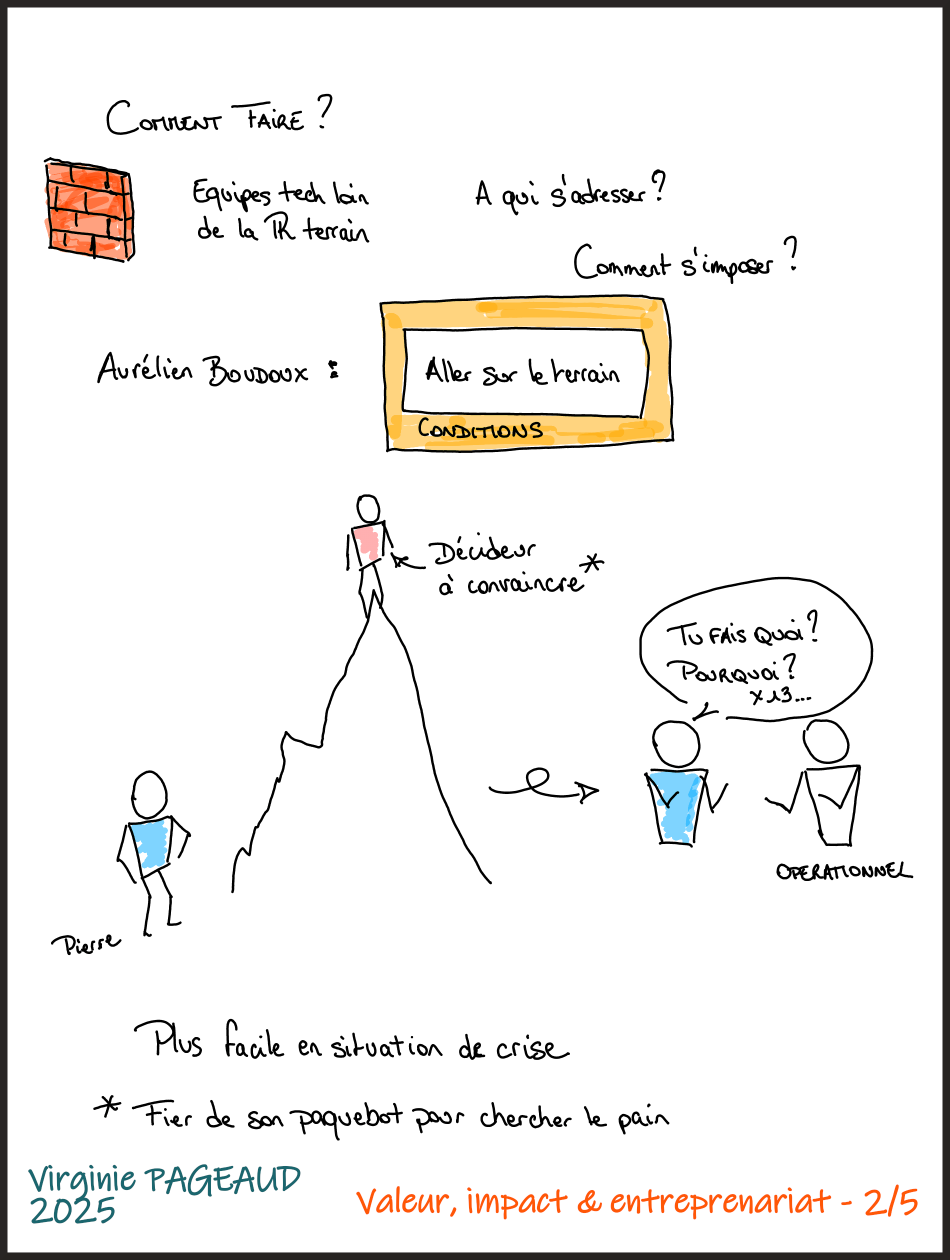 COMMENT FAIRE ?
Equipes tech loin
de la PR terrain
A qui s'adresser ?
Comment s'imposer ?
Aurélien BOUDOUX :
Aller sur le terrain
CONDITIONS
Décideur
à convaincre *
TU FAIS QUOI ?
POURQUOI ?
x 13...
OPERATIONNEL
Pierre
Plus facile en situation de crise
* Fier de son paquebot pour chercher le pain
Virginie PAGEAUD
2025
Valeur, impact & entreprenariat - 2/5